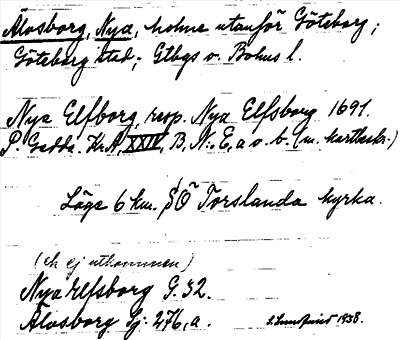 Älvsborg, Nya, holme utanför Göteborg;
Göteborg stad; Gtbgs o. Bohus l.
Nya Elfborg, resp. Nya Elfsborg 1691.
P. Gedda. Kr.A, XXIV, B, N: E, a o. b. (m. kartbeskr.)
Läge 6 km. SO Torslanda kyrka.
(ek ej utkommen)
Nya Elfsborg G. 32.
Älvsborg Sj. 276, a. S. Lundqvist 1938.